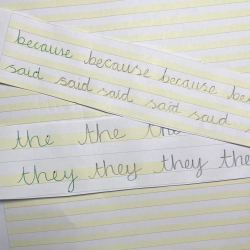 because because because be
said said said said said
the the the
they they they the